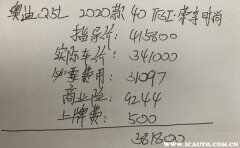 奥迪Q5L 2020款 40 TFSI·豪华时尚
指导价: 415800
实际车价: 341000
必要费用: 31097
商业险: 9244
上牌费: 500
381800
www.icauto.com.cn